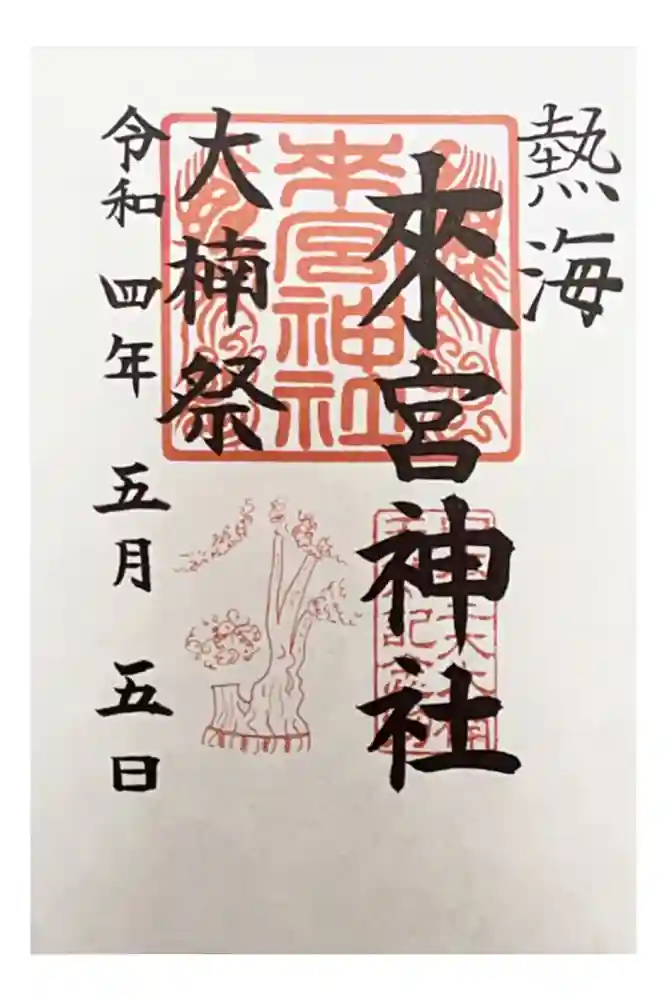 熱海
來宮神社
来宮神社
大楠祭
令和四年 五月 五日